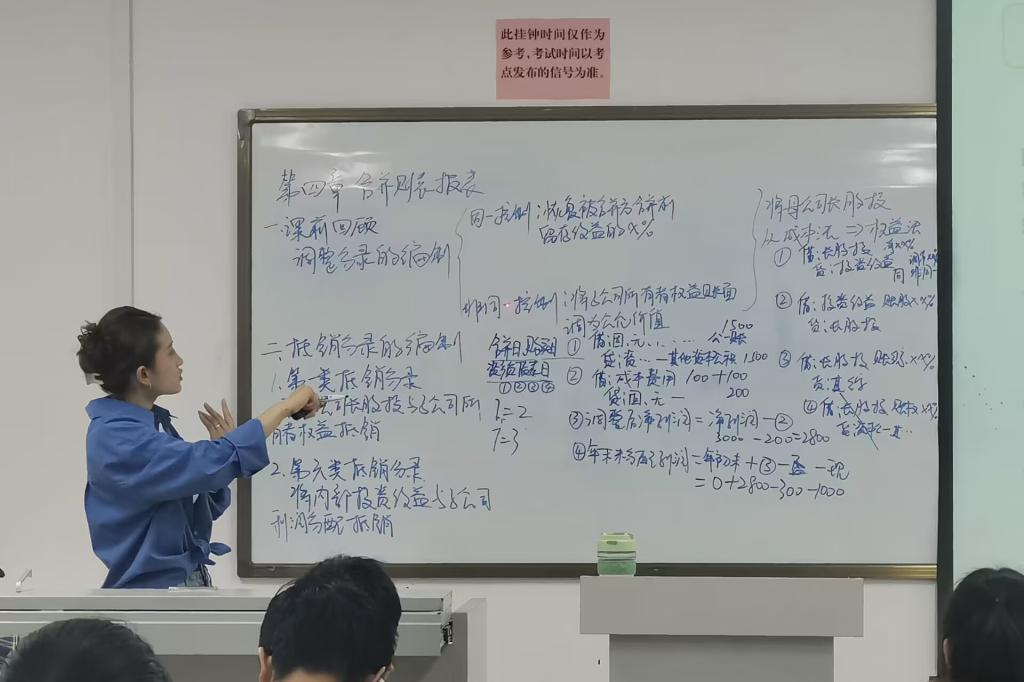 此挂钟时间仅作为
参考,考试时间以考
点发布的信号为准。
第四章 合并财务报表
一.课前回顾
调整分录的编制
同一控制:恢复被合并方合并前
留存收益的x%
非同一控制:将子公司所有者权益账面
调为公允价值
① 借:固、无、… … 公-账 1500
贷:资…—其他资本公积 1500
② 借:成本费用 100+100
贷:固、无— 200
③调整后净利润=净利润-②
3000 -200=2800
④年末未分配利润=年初未+③-盈-现
=0+2800-300-1000
将母公司长股投
从成本法⇒权益法
① 借:长股投
贷:投资收益
② 借:投资收益
贷:长股投
③ 借:长股投
④ 借:长股投
二.抵销分录的编制
1.第一类抵销分录
公司长股投与子公司所
有者权益抵销
2.第六类抵销分录
将内部投资收益与子公司
利润分配抵销
合并日
资负表日
①②③④
1=2
7=3